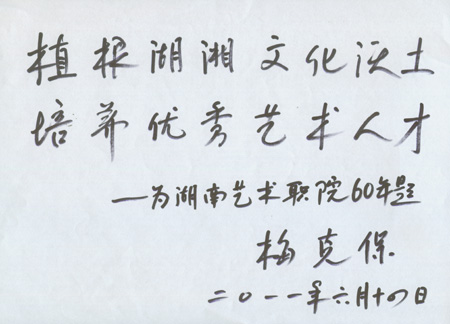 植根湖湘文化沃土
培养优秀艺术人才
——为湖南艺术职院60年题
梅克保
二〇一一年六月十四日